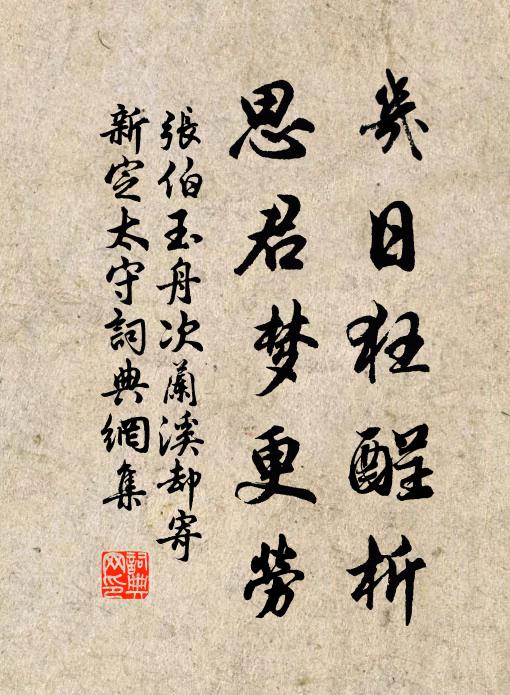 幾日狂酲析
思君梦更勞
張伯玉舟次蘭溪却寄
新定太守詞典網集
詞典
网印